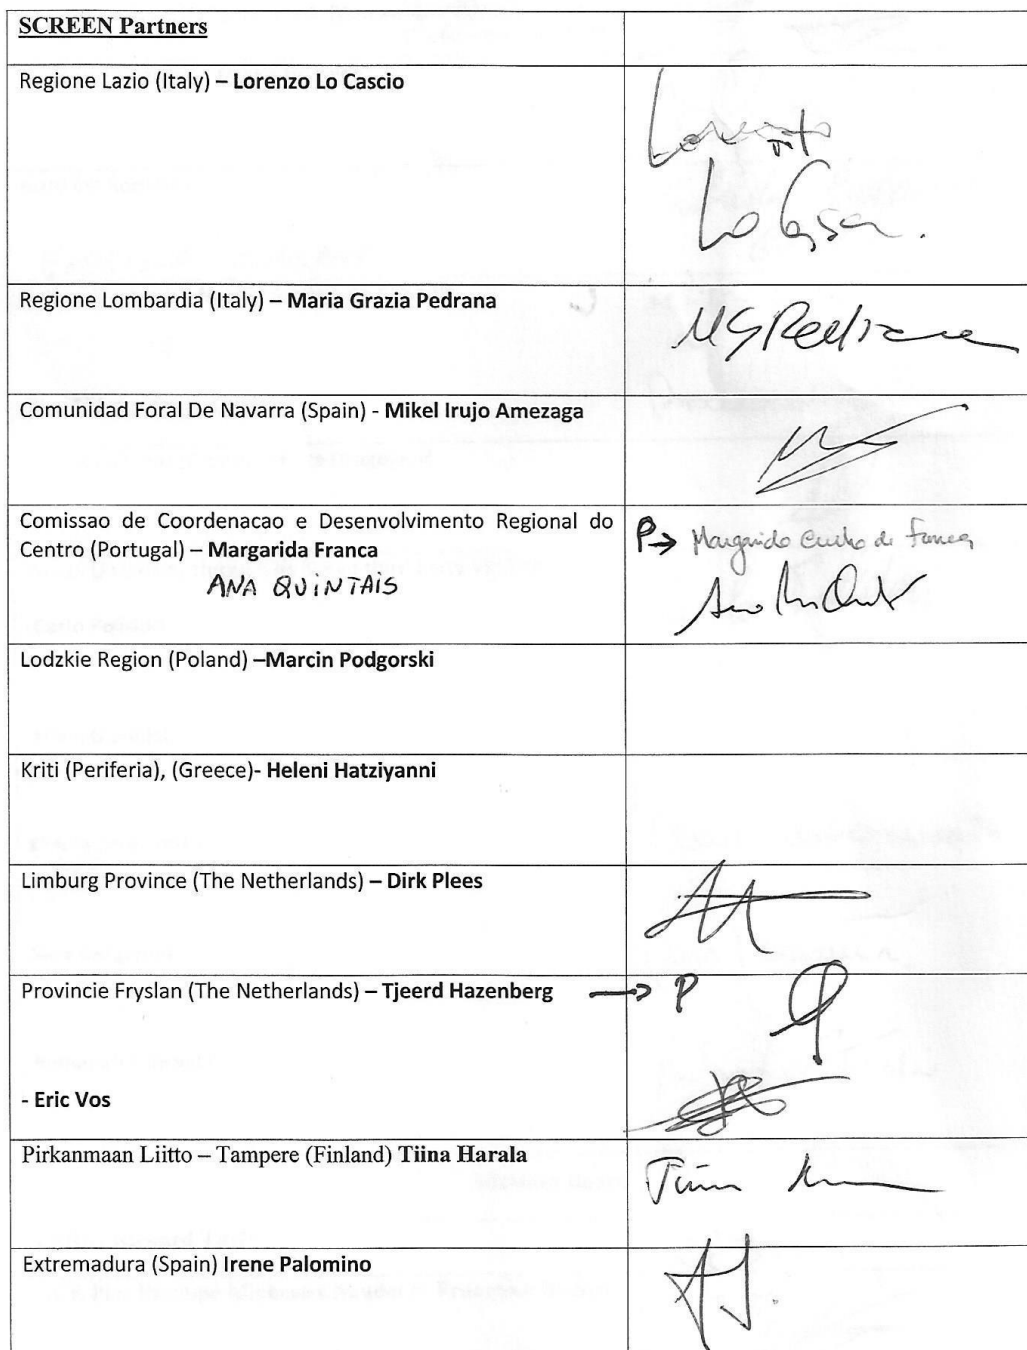 SCREEN Partners
Regione Lazio (Italy) – Lorenzo Lo Cascio
Lorenzo
Lo Cascio.
Regione Lombardia (Italy) – Maria Grazia Pedrana
MGPedrana
Comunidad Foral De Navarra (Spain) - Mikel Irujo Amezaga
Comissao de Coordenacao e Desenvolvimento Regional do
Centro (Portugal) – Margarida Franca
ANA QUiNTAiS
P→ Margarida Cunha de Franca
Lodzkie Region (Poland) –Marcin Podgorski
Kriti (Periferia), (Greece)- Heleni Hatziyanni
Limburg Province (The Netherlands) – Dirk Plees
Provincie Fryslan (The Netherlands) – Tjeerd Hazenberg → P
- Eric Vos
Pirkanmaan Liitto – Tampere (Finland) Tiina Harala
Tiina
Extremadura (Spain) Irene Palomino